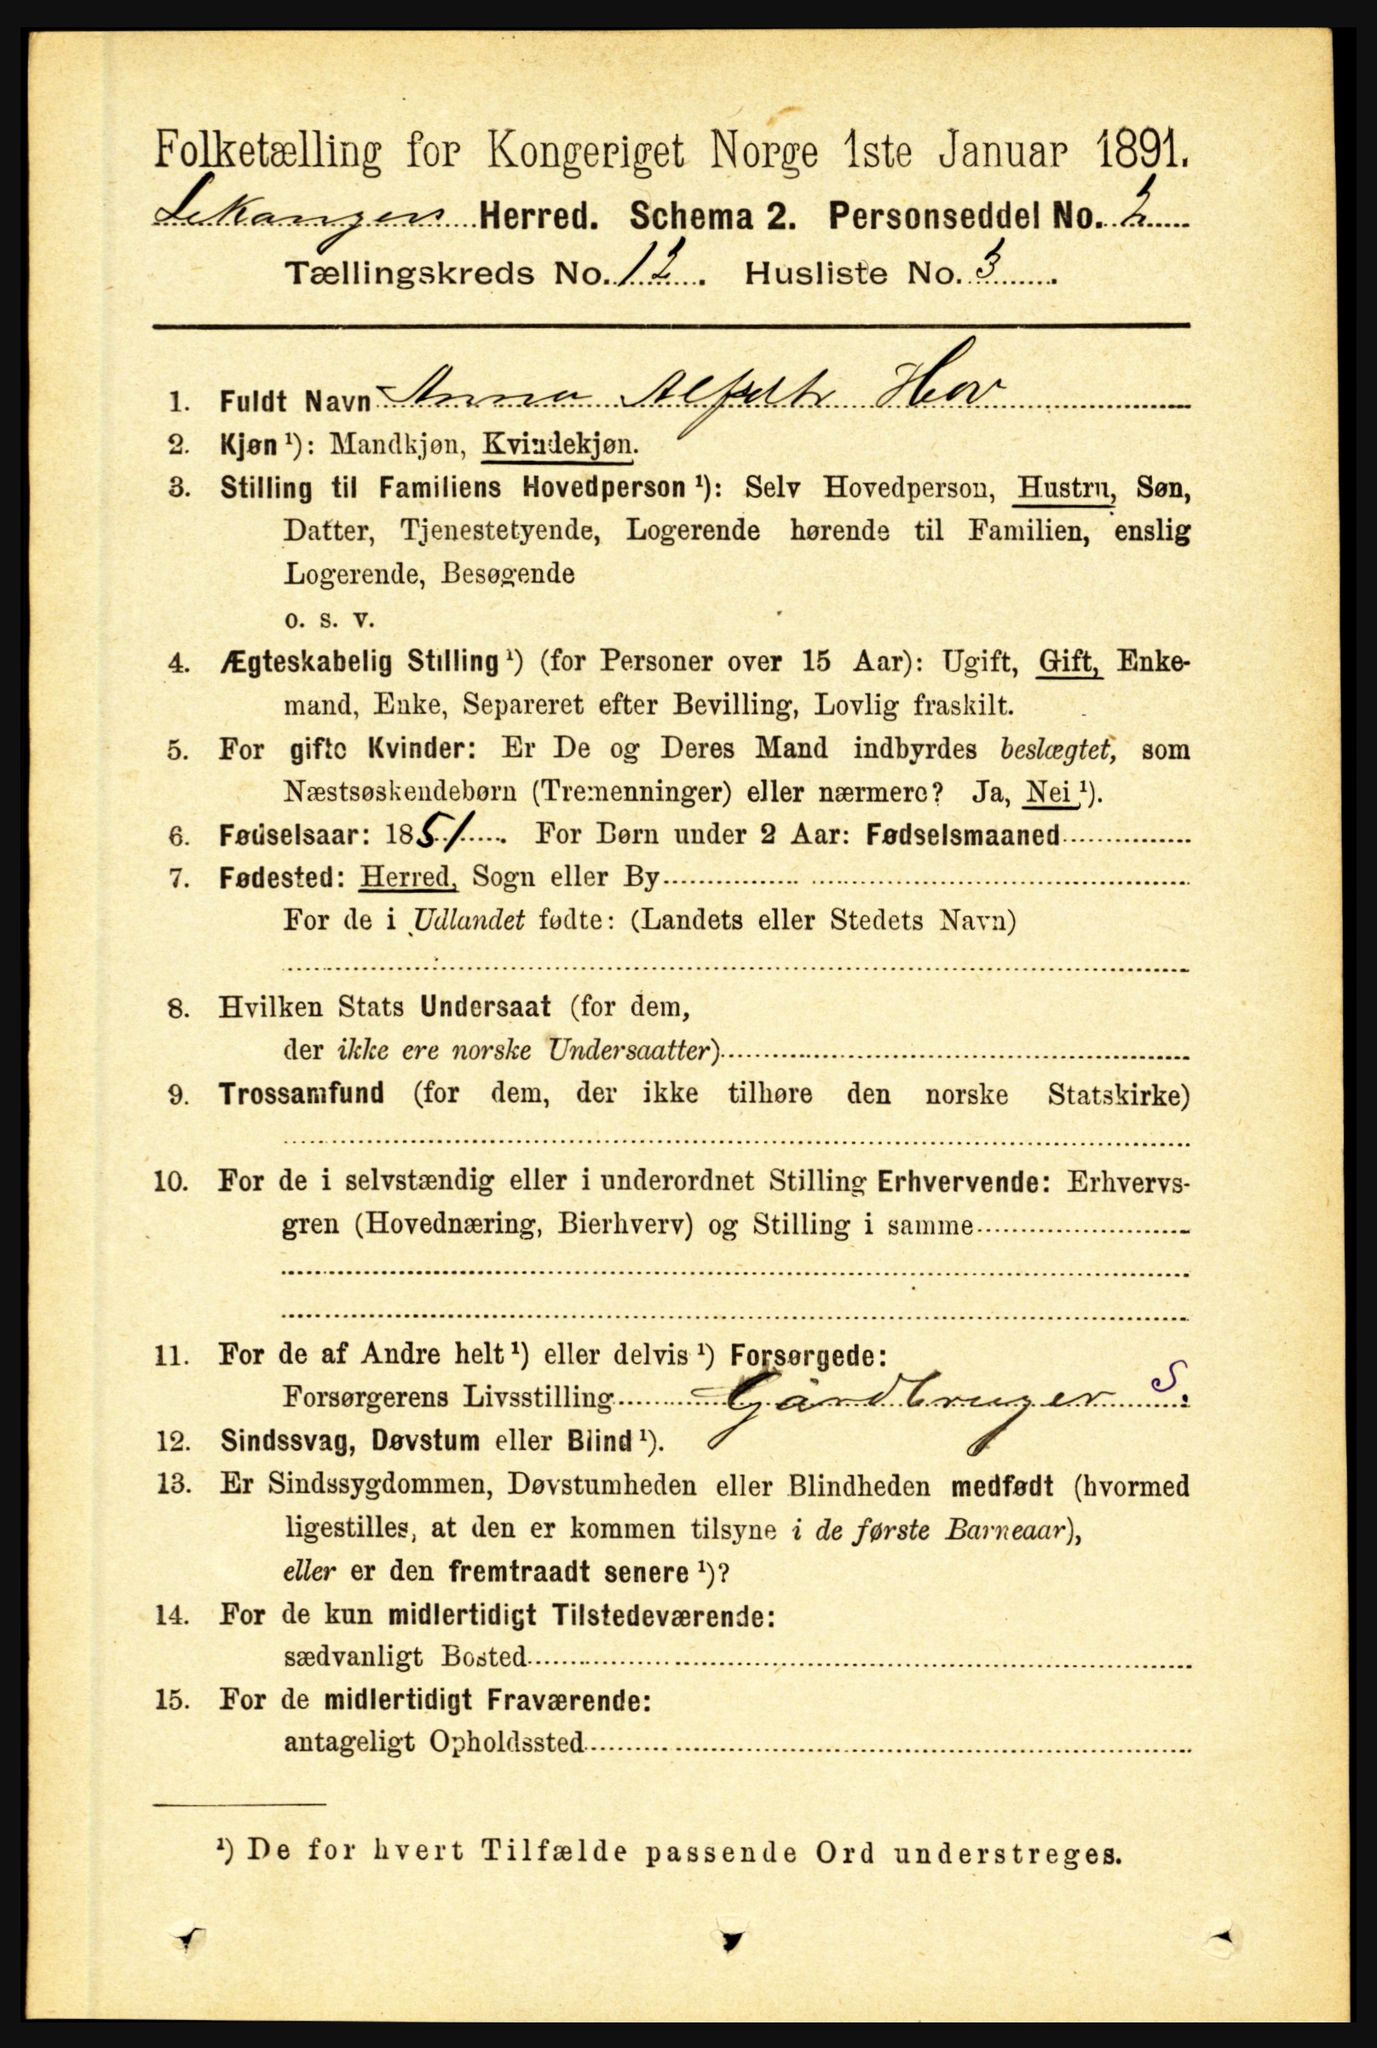 Folketælling for Kongeriget Norge 1ste Januar 1891.
Lekanger Herred. Schema 2. Personseddel No. 2
Tællingskreds No. 12. Husliste No. 3.
1. Fuldt Navn Anna Alfsdtr Hov
2. Kjøn ¹): Mandkjøn, Kvindekjøn.
3. Stilling til Familiens Hovedperson ¹): Selv Hovedperson, Hustru, Søn,
Datter, Tjenestetyende, Logerende hørende til Familien, enslig
Logerende, Besøgende
o. s. v.
4. Ægteskabelig Stilling ¹) (for Personer over 15 Aar): Ugift, Gift, Enke-
mand, Enke, Separeret efter Bevilling, Lovlig fraskilt.
5. For gifte Kvinder: Er De og Deres Mand indbyrdes beslægtet, som
Næstsøskendebørn (Tremenninger) eller nærmere? Ja, Nei ¹).
6. Fødselsaar: 1851. For Børn under 2 Aar: Fødselsmaaned
7. Fødested: Herred, Sogn eller By
For de i Udlandet fødte: (Landets eller Stedets Navn)
8. Hvilken Stats Undersaat (for dem,
der ikke ere norske Undersaatter)
9. Trossamfund (for dem, der ikke tilhøre den norske Statskirke)
10. For de i selvstændig eller i underordnet Stilling Erhvervende: Erhvervs-
gren (Hovednæring, Bierhverv) og Stilling i samme
11. For de af Andre helt ¹) eller delvis ¹) Forsørgede:
Forsørgerens Livsstilling Gårdbruger S.
12. Sindssvag, Døvstum eller Blind ¹).
13. Er Sindssygdommen, Døvstumheden eller Blindheden medfødt (hvormed
ligestilles, at den er kommen tilsyne i de første Barneaar),
eller er den fremtraadt senere ¹)?
14. For de kun midlertidigt Tilstedeværende:
sædvanligt Bosted
15. For de midlertidigt Fraværende:
antageligt Opholdssted
¹) De for hvert Tilfælde passende Ord understreges.